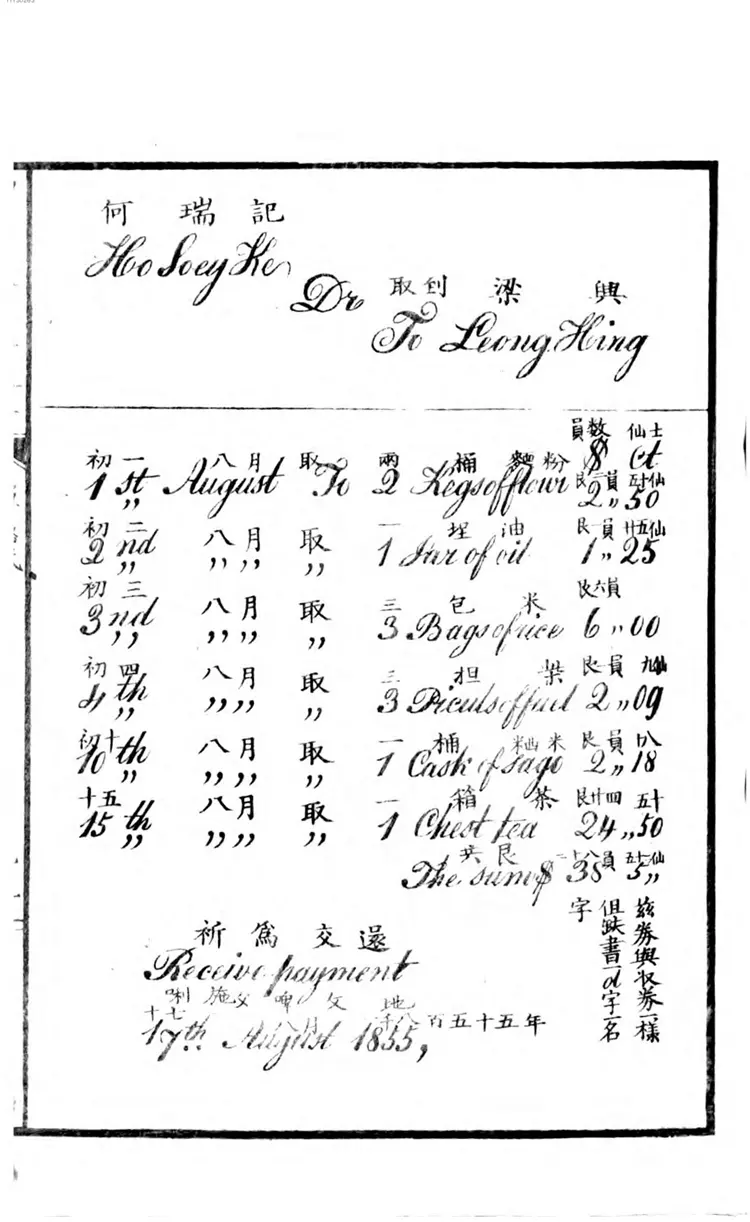 何 瑞 記
Ho Soey Ke
取到 梁 興
Dr To Leong Hing
員数 仙士
$ Ct
初一 八月 取 兩 桶 麵粉 艮二員 五十仙
1st August To 2 Kegs of flour 2 〃 50
初二 八月 取 一 埕 油 艮一員 廿五仙
2nd 〃 〃 〃 1 Jar of oil 1 〃 25
初三 八月 取 三 包 米 艮六員
3nd 〃 〃 〃 3 Bags of rice 6 〃 00
初四 八月 取 三 担 柴 艮二員 九仙
4th 〃 〃 〃 3 Piculs of fuel 2 〃 09
初十 八月 取 一 桶 米 艮二員 十八
10th 〃 〃 〃 1 Cask of sago 2 〃 18
十五 八月 取 一 箱 茶 艮廿四 五十
15th 〃 〃 〃 1 Chest tea 24 〃 50
共艮 三十八員 五十仙
The sum $ 38 5 〃
祈 為 交 還
Receive payment
唎 施  文 啤 文 地
十七 八月 千八百五十五年
17th August 1855,
茲券與收券一樣
但缺書一d字一名
字